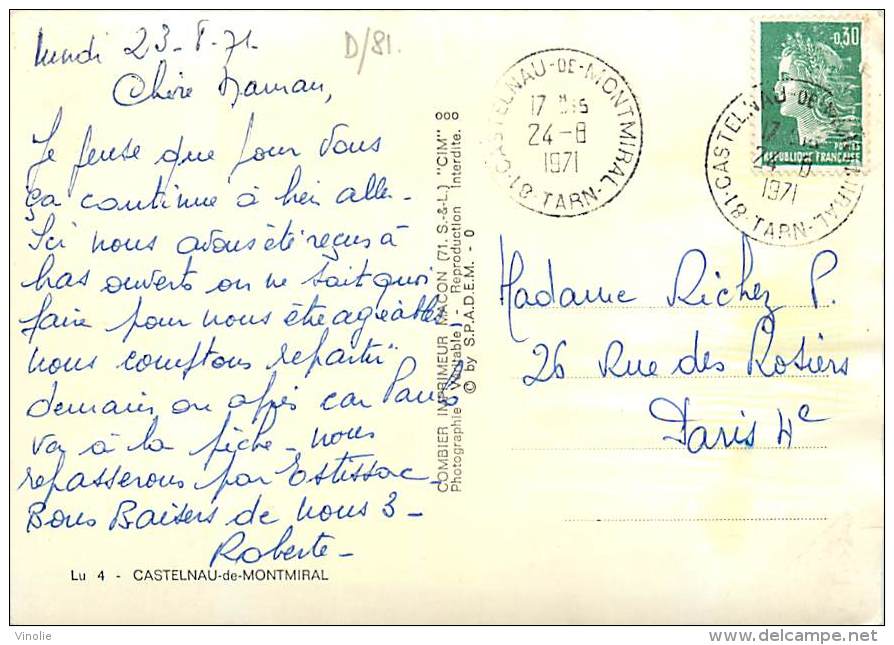 lundi 23-8-71
D/81.
Chère Maman,
Je pense que pour vous
ça continue à bien aller.
Ici nous avons été reçus à
bras ouverts on ne sait quoi
faire pour nous être agréables
nous comptons repartir
demain ou après car Paul
va à la pêche - nous
repasserons par Estissac -
Bons Baisers de nous 3 -
Roberte -
Lu 4 - CASTELNAU-de-MONTMIRAL
COMBIER IMPRIMEUR MACON (71. S.-&-L.) "CIM"
Photographie Véritable) - Reproduction Interdite.
© by S.P.A.D.E.M. - 0
CASTELNAU-DE-MONTMIRAL
17 H 15
24-8
1971
·81· TARN-
-0,30
POSTES
REPUBLIQUE FRANÇAISE
CASTELNAU-DE-MONTMIRAL
17 H 15
24-8
1971
·81· TARN-
Madame Richez P.
26 Rue des Rosiers
Paris 4e
Vinolie
http://www.delcampe.net